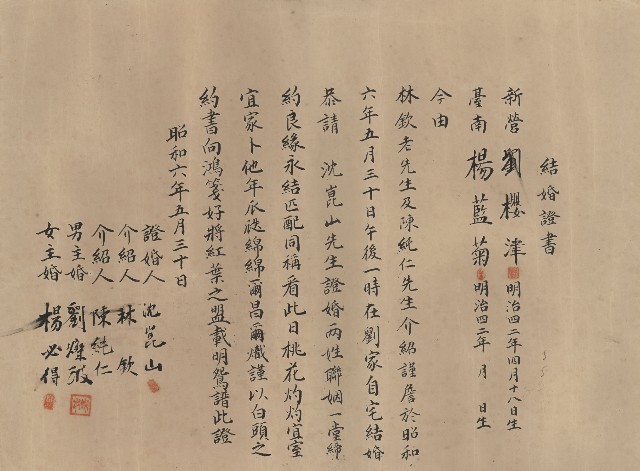 結婚證書
新營 劉櫻津 明治四二年四月十八日生
臺南 楊藍菊 明治四二年 月 日生
今由
林欽老先生及陳純仁先生介紹謹詹於昭和
六年五月三十日午後一時在劉家自宅結婚
恭請 沈崑山先生證婚兩姓聯姻一堂締
約良緣永結匹配同稱看此日桃花灼灼宜室
宜家卜他年瓜瓞綿綿爾昌爾熾謹以白頭之
約書向鴻箋好將紅葉之盟載明鴛譜此證
昭和六年五月三十日
證婚人 沈崑山
介紹人 林欽
介紹人 陳純仁
男主婚 劉燦
女主婚 楊必得